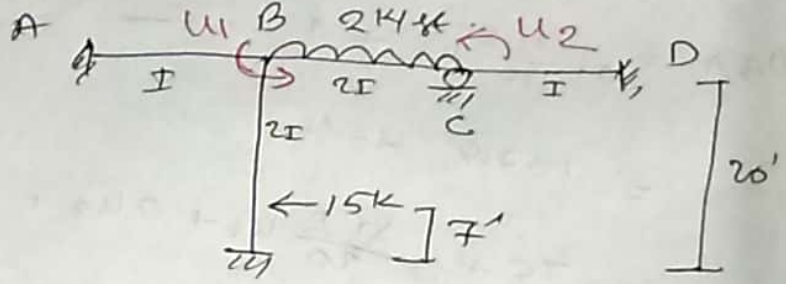 A U1 B 2k/ft U2 D
I 2I I
C
2I
20'
←15k 7'